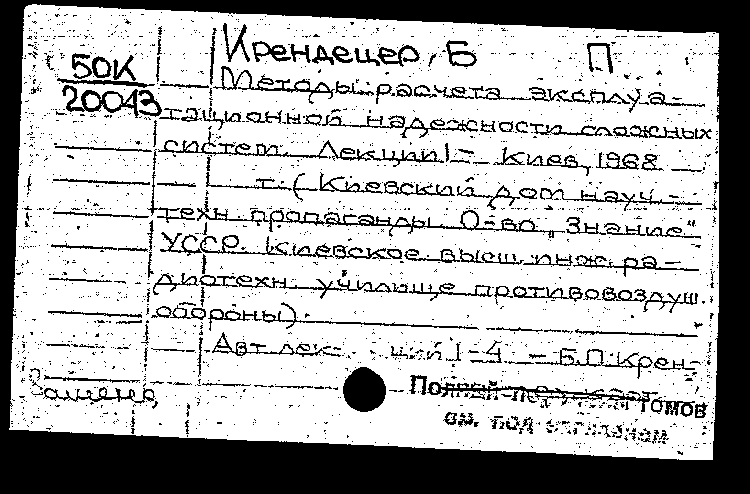 Крендецер, Б П
50К
20043
Методы расчета эксплуа-
тационной надежности сложных
систем. Лекции 1- Киев, 1968
т. (Киевский дом науч.-
техн пропаганды О-во „Знание"
УССР. Киевское высш. инж. ра-
диотехн. училище противовоздуш.
обороны).
Авт лек- ций 1-4 - Б.П. Крен-
Замена
томов
см. под заглавием